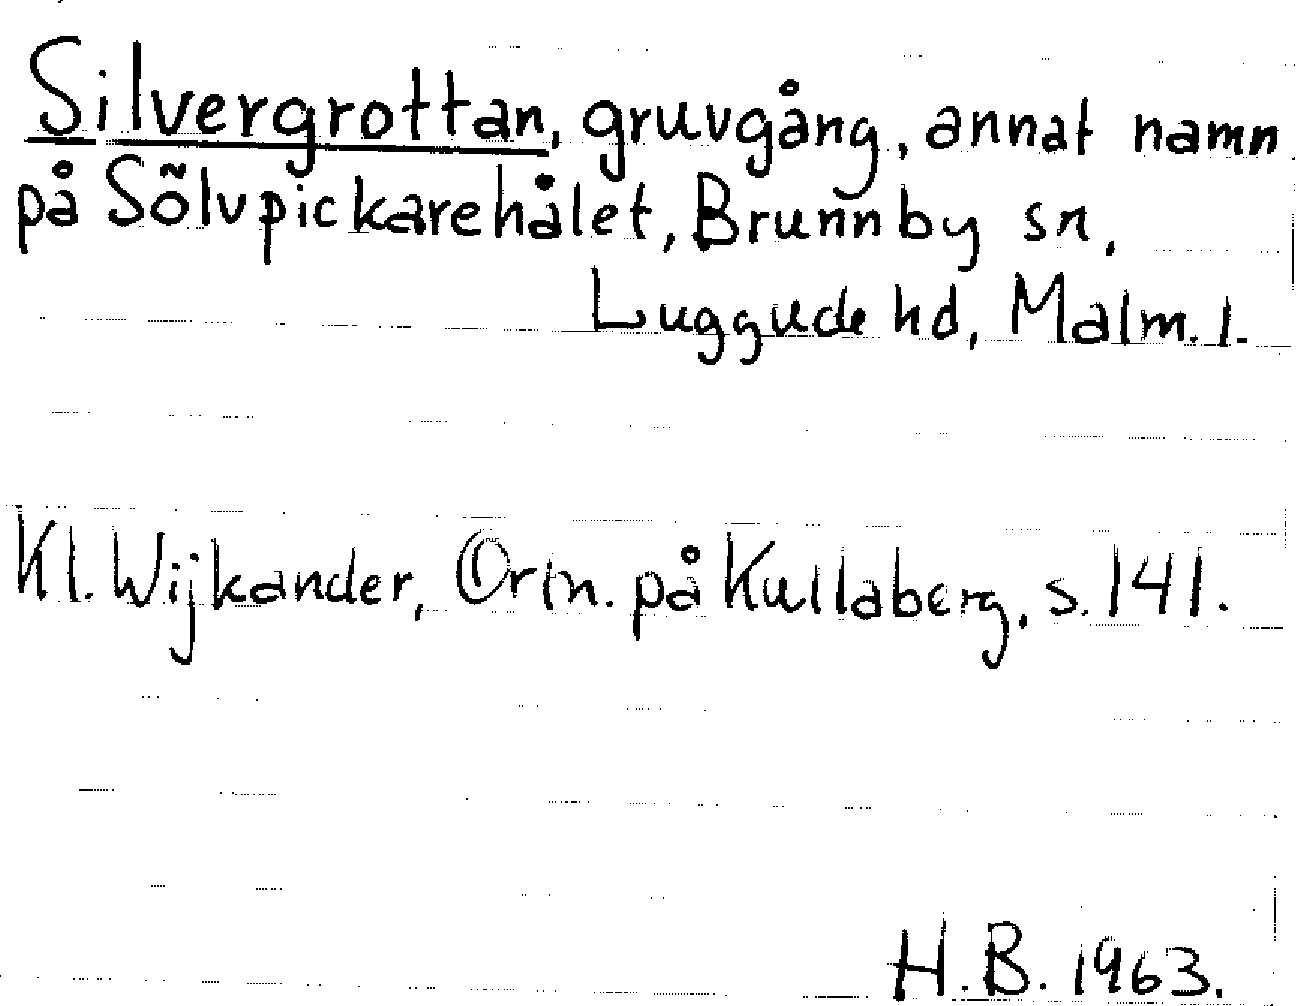 Silvergrottan, gruvgång, annat namn
på Sõlvpickarehålet, Brunnby sn,
Luggude hd, Malm. l.
Kl. Wijkander, Ortn. på Kullaberg, s. 141.
H.B. 1963.